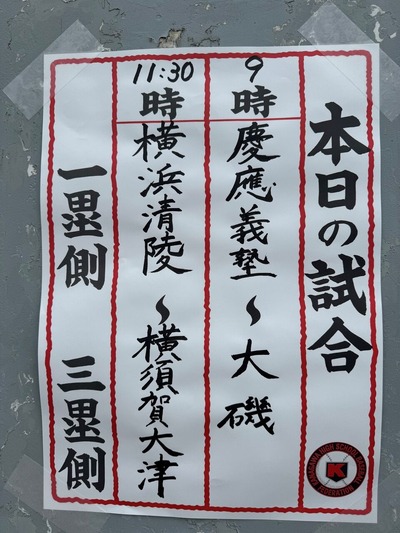 本日の試合
9時 慶應義塾 〜 大磯
11:30時 横浜清陵 〜 横須賀大津
一塁側 三塁側
KANAGAWA HIGH SCHOOL BASEBALL FEDERATION
K